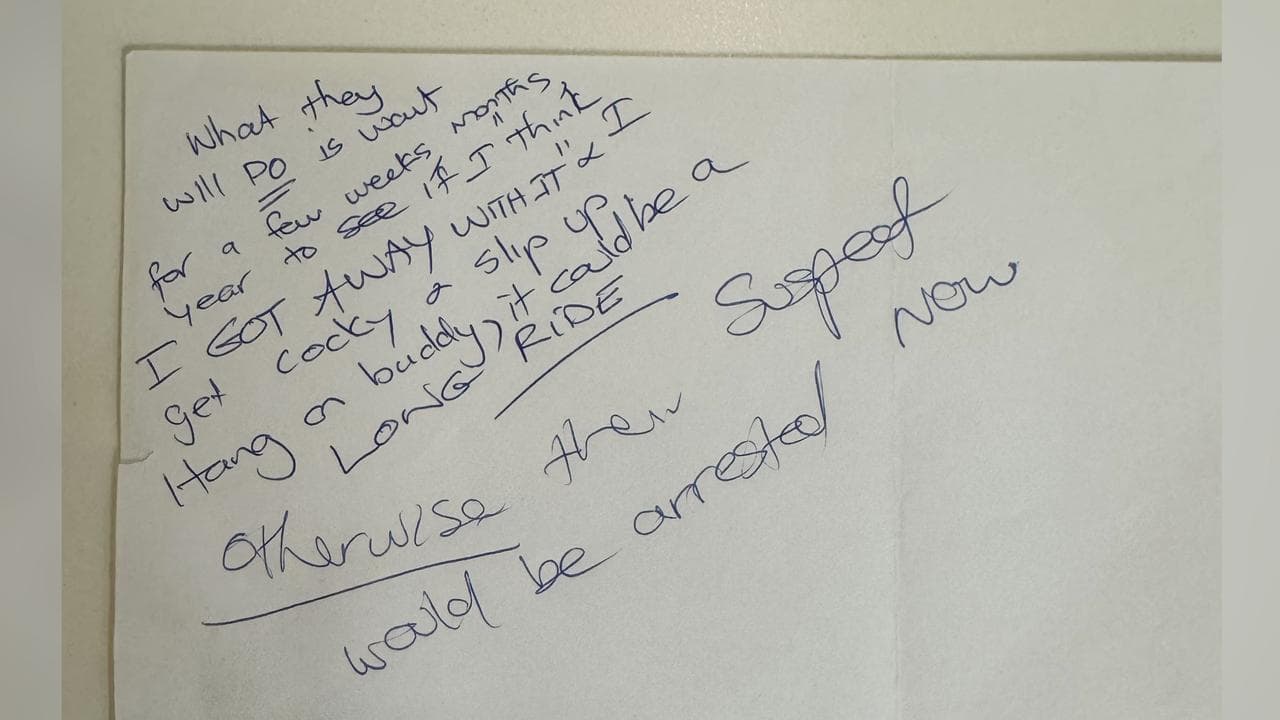 What they
will DO is wait
for a few weeks, months,
year to see if I "think"
I GOT AWAY WITH IT" & I
get cocky & slip up
Hang on buddy, it could be a
LONG RIDE
Otherwise their Suspect
would be arrested NOW